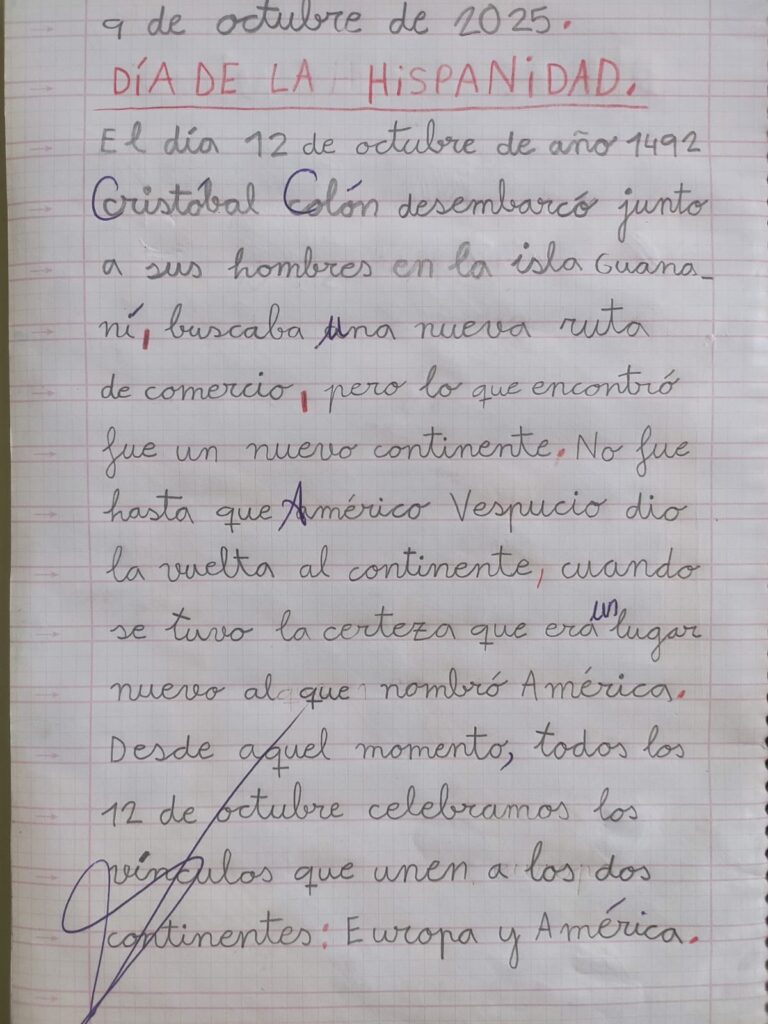 9 de octubre de 2025.
DÍA DE LA HiSPANiDAD.
El día 12 de octubre de año 1492
Cristóbal Colón desembarcó junto
a sus hombres en la isla Guana-
ní, buscaba una nueva ruta
de comercio, pero lo que encontró
fue un nuevo continente. No fue
hasta que Américo Vespucio dio
la vuelta al continente, cuando
se tuvo la certeza que era un lugar
nuevo al que nombró América.
Desde aquel momento, todos los
12 de octubre celebramos los
vínculos que unen a los dos
continentes: Europa y América.